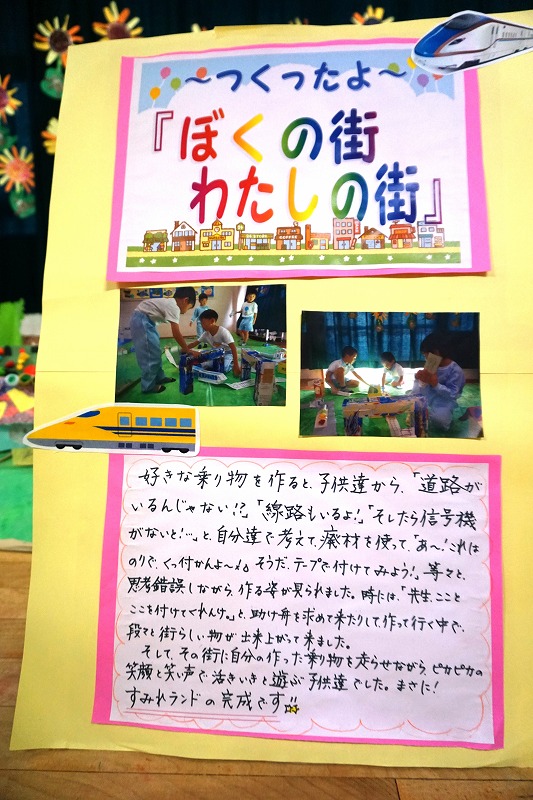 ～つくったよ～
『ぼくの街
わたしの街』
好きな乗り物を作ると、子供達から、「道路が
いるんじゃない!?」「線路もいるよ!」「そしたら信号機
がないと!…」と、自分達で考えて、廃材を使って、「あ～!これは
のりで、くっ付かんよ～」「そうだ、テープで付けてみよう!」等々と、
思考錯誤しながら、作る姿が見られました。時には、「先生、こことここ
ここを付けてくれんけ。」と、助け舟を求めて来たりして、作って行く中で、
段々と街らしい物が出来上がって来ました。
そして、その街に自分の作った乗り物を走らせながら、ピカピカの
笑顔と笑い声で活きいきと遊ぶ子供達でした。まさに!
すみれランドの完成です!!